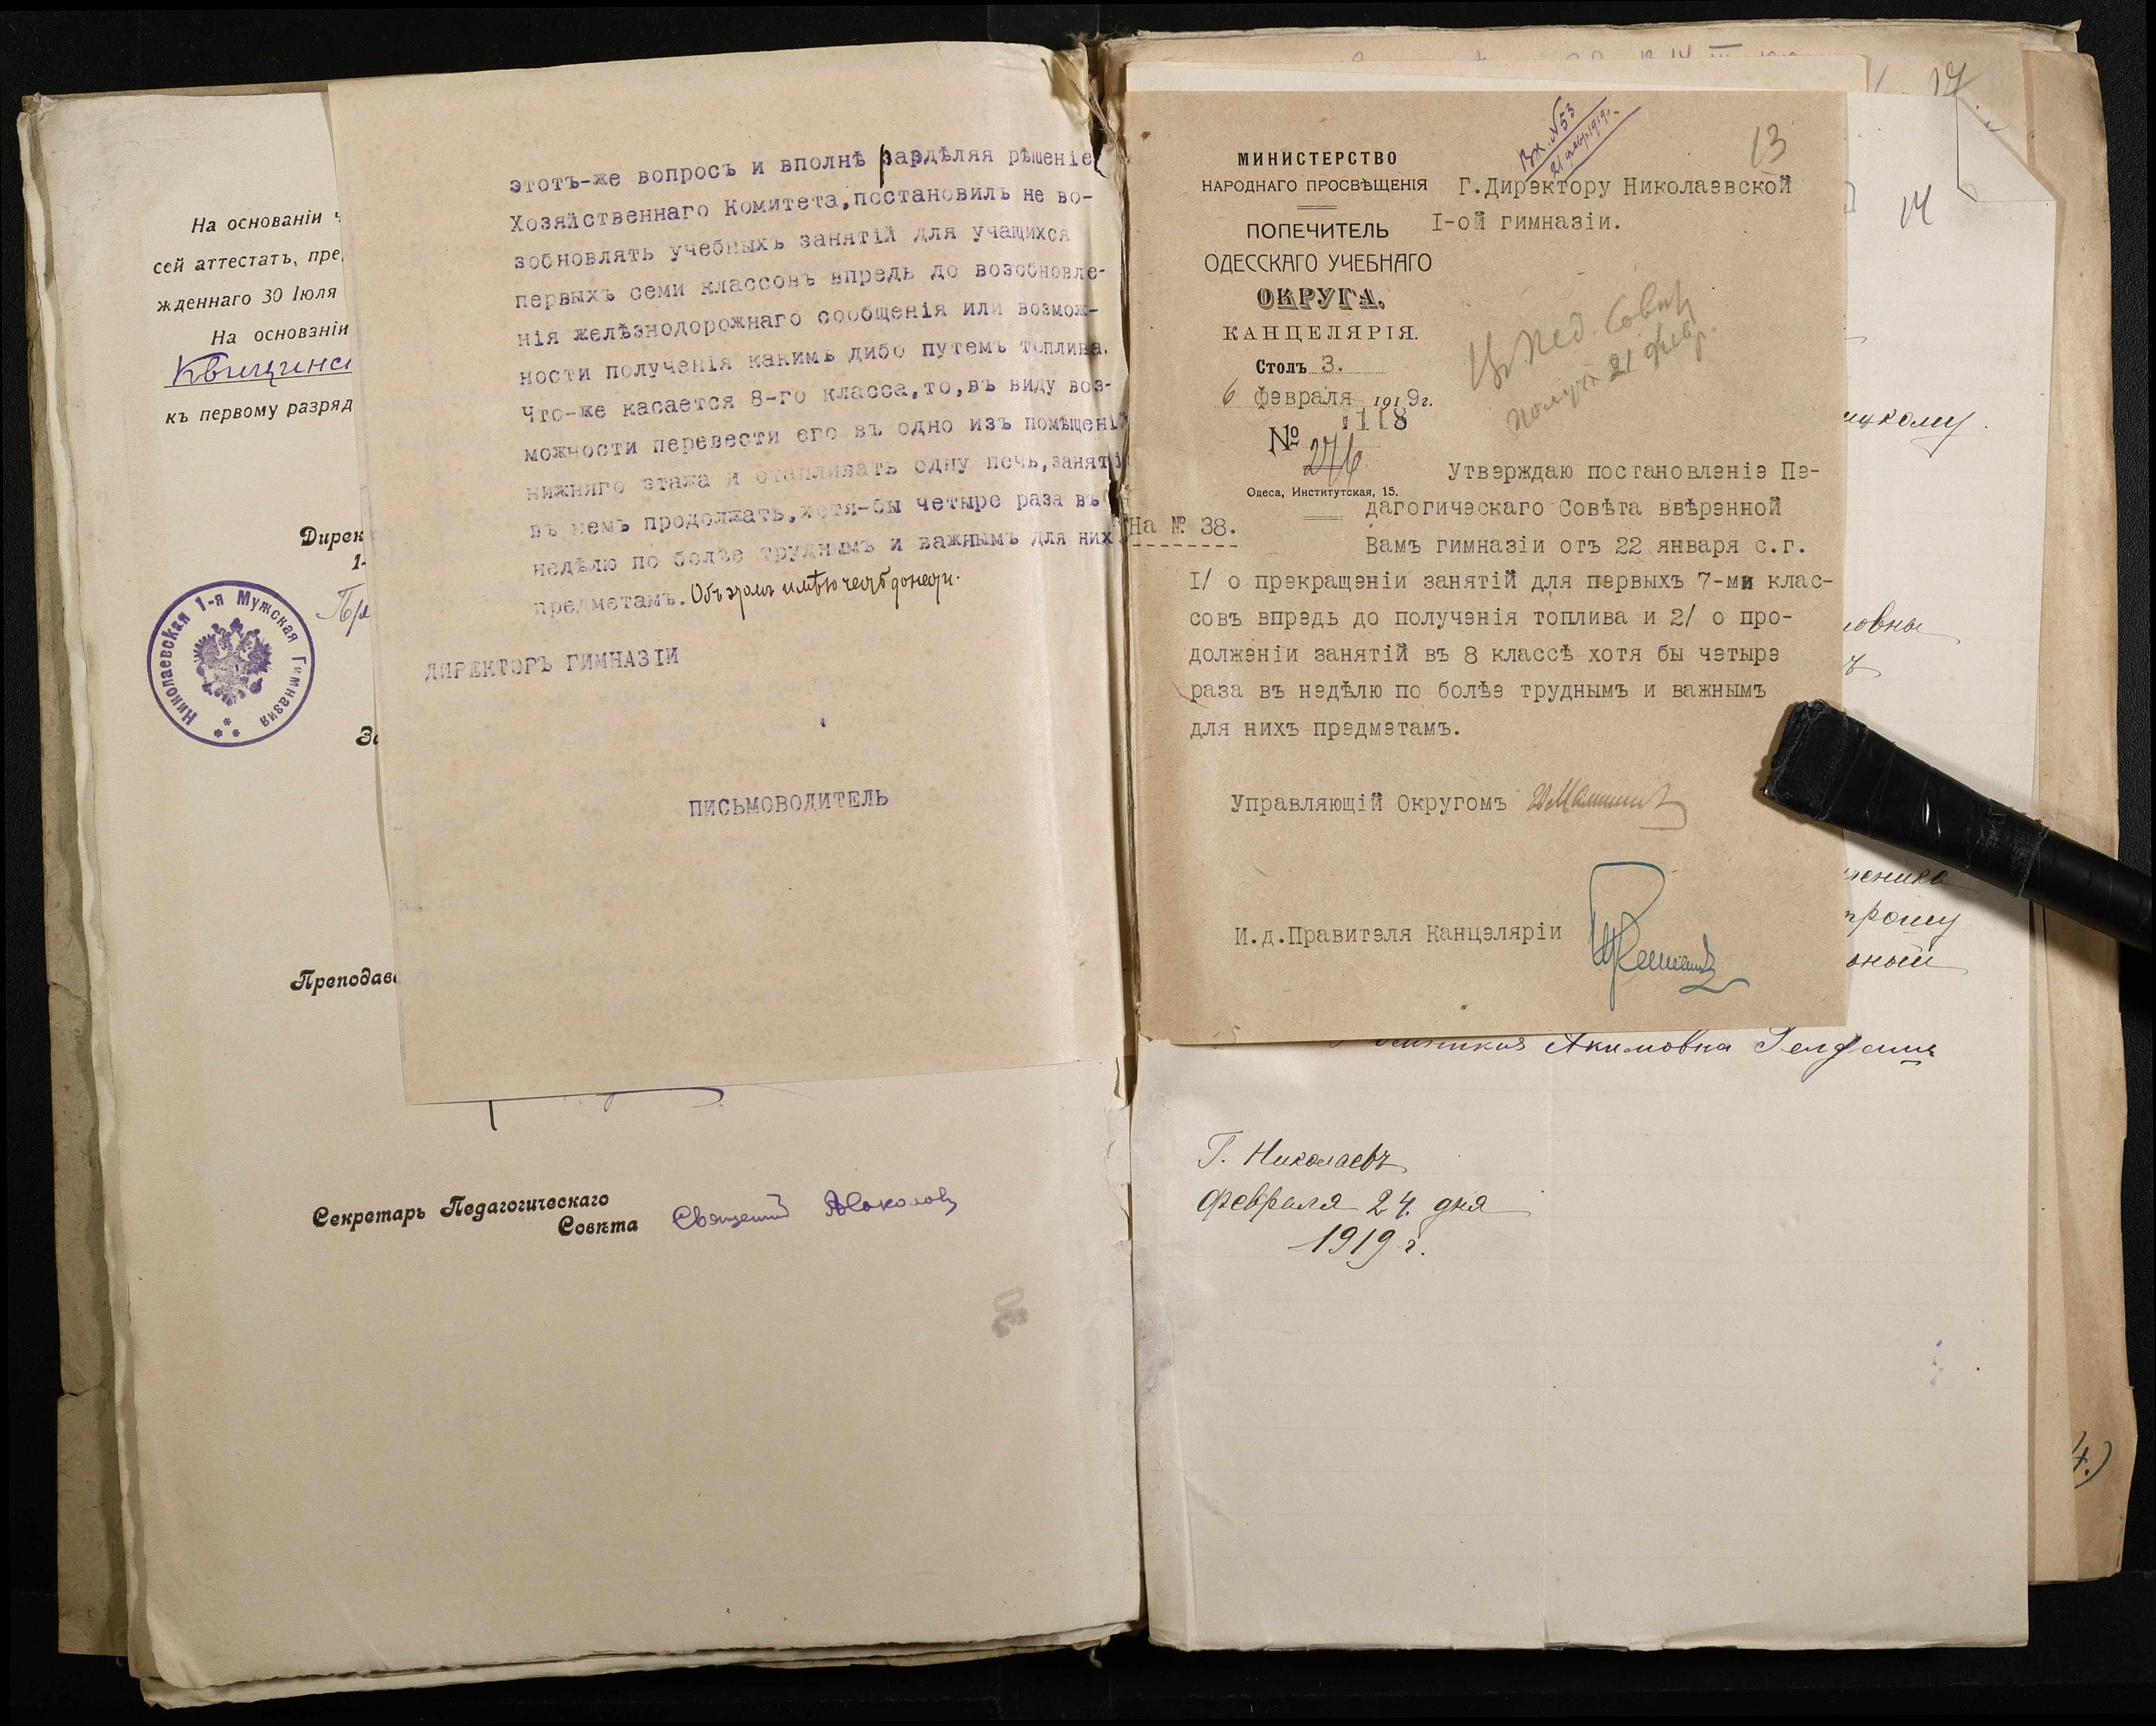 На основаніи
сей аттестатъ,
жденнаго 30 Іюля
На основаніи
къ первому разряд
Николаевская 1-я Мужская Гимназия
Преподава
Секретарь Педагогическаго
Совѣта
этотъ-же вопросъ и вполнѣ рардѣляя рѣшеніе
Хозяйственнаго Комитета,постановилъ не во-
зобновлять учебныхъ занятій для учащихся
первыхъ семи классовъ впредь до возобновле-
нія желѣзнодорожнаго сообщенія или возмож-
ности полученія какимъ дибо путемъ топлива.
Что-же касается 8-го класса,то,въ виду воз-
можности перевести его въ одно изъ помѣщені
нижняго этажа и отапливать одну печь,заняті
въ немъ продолжать,хотя-бы четыре раза въ
недѣлю по болѣе труднымъ и важнымъ для них
предметамъ. Объ этомъ имѣю честь донести.
ДИРЕКТОРЪ ГИМНАЗІИ
ПИСЬМОВОДИТЕЛЬ
17
14
13
Вх. №53
21 февр. 1919 г.
МИНИСТЕРСТВО
НАРОДНАГО ПРОСВѢЩЕНІЯ
ПОПЕЧИТЕЛЬ
ОДЕССКАГО УЧЕБНАГО
ОКРУГА.
КАНЦЕЛЯРІЯ.
Столъ 3.
6 февраля 1919г.
1118
№ 276
Одеса, Институтская, 15.
На № 38.
Г.Директору Николаевской
I-ой гимназіи.
Пед. Совѣт
21 февр.
Утверждаю постановленіе Пе-
дагогическаго Совѣта ввѣренной
Вамъ гимназіи отъ 22 января с.г.
I/ о прекращеніи занятій для первыхъ 7-ми клас-
совъ впредь до полученія топлива и 2/ о про-
долженіи занятій въ 8 классѣ хотя бы четыре
раза въ недѣлю по болѣе труднымъ и важнымъ
для нихъ предметамъ.
Управляющій Округомъ
И.д.Правителя Канцеляріи
прошу
Акимовна
Г. Николаевъ
Февраля 24 дня
1919 г.